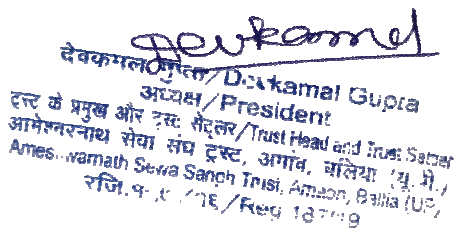 Devkamal
देवकमल गुप्ता/Devkamal Gupta
अध्यक्ष/President
ट्रस्ट के प्रमुख और ट्रस्ट सेटलर/Trust Head and Trust Settler
आमेश्वरनाथ सेवा संघ ट्रस्ट, अगांव, बलिया (यू.पी.)
Ameshwarnath Sewa Sangh Trust, Amaon, Ballia (UP)
रजि. /Reg